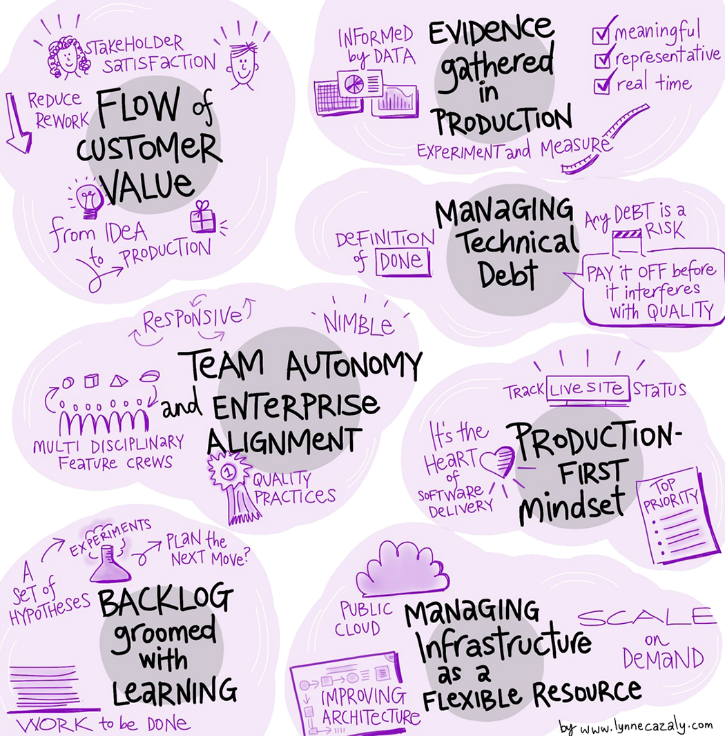 STAKEHOLDER
SATISFACTION
REDUCE
REWORK
FLOW of
CUSTOMER
VALUE
from IDEA
to PRODUCTION
INFORMED
by DATA
EVIDENCE
gathered
in
PRODUCTION
meaningful
representative
real time
EXPERIMENT and MEASURE
MANAGING
Technical
Debt
DEFINITION
of DONE
Any DEBT is a
RISK
PAY it OFF before
it interferes
with QUALITY
RESPONSIVE
NIMBLE
TEAM AUTONOMY
and ENTERPRISE
ALIGNMENT
MULTI DISCIPLINARY
FEATURE CREWS
1
QUALITY
PRACTICES
TRACK LIVE SITE STATUS
It's the
HEART
of
SOFTWARE
DELIVERY
PRODUCTION-
FIRST
mindset
TOP
PRIORITY
A
SET of
HYPOTHESES
EXPERIMENTS
PLAN the
NEXT MOVE?
BACKLOG
groomed
with
LEARNING
WORK to be DONE
PUBLIC
CLOUD
MANAGING
Infrastructure
as a
FLEXIBLE RESOURCE
SCALE
on
DEMAND
IMPROVING
ARCHITECTURE
by www.lynnecazaly.com